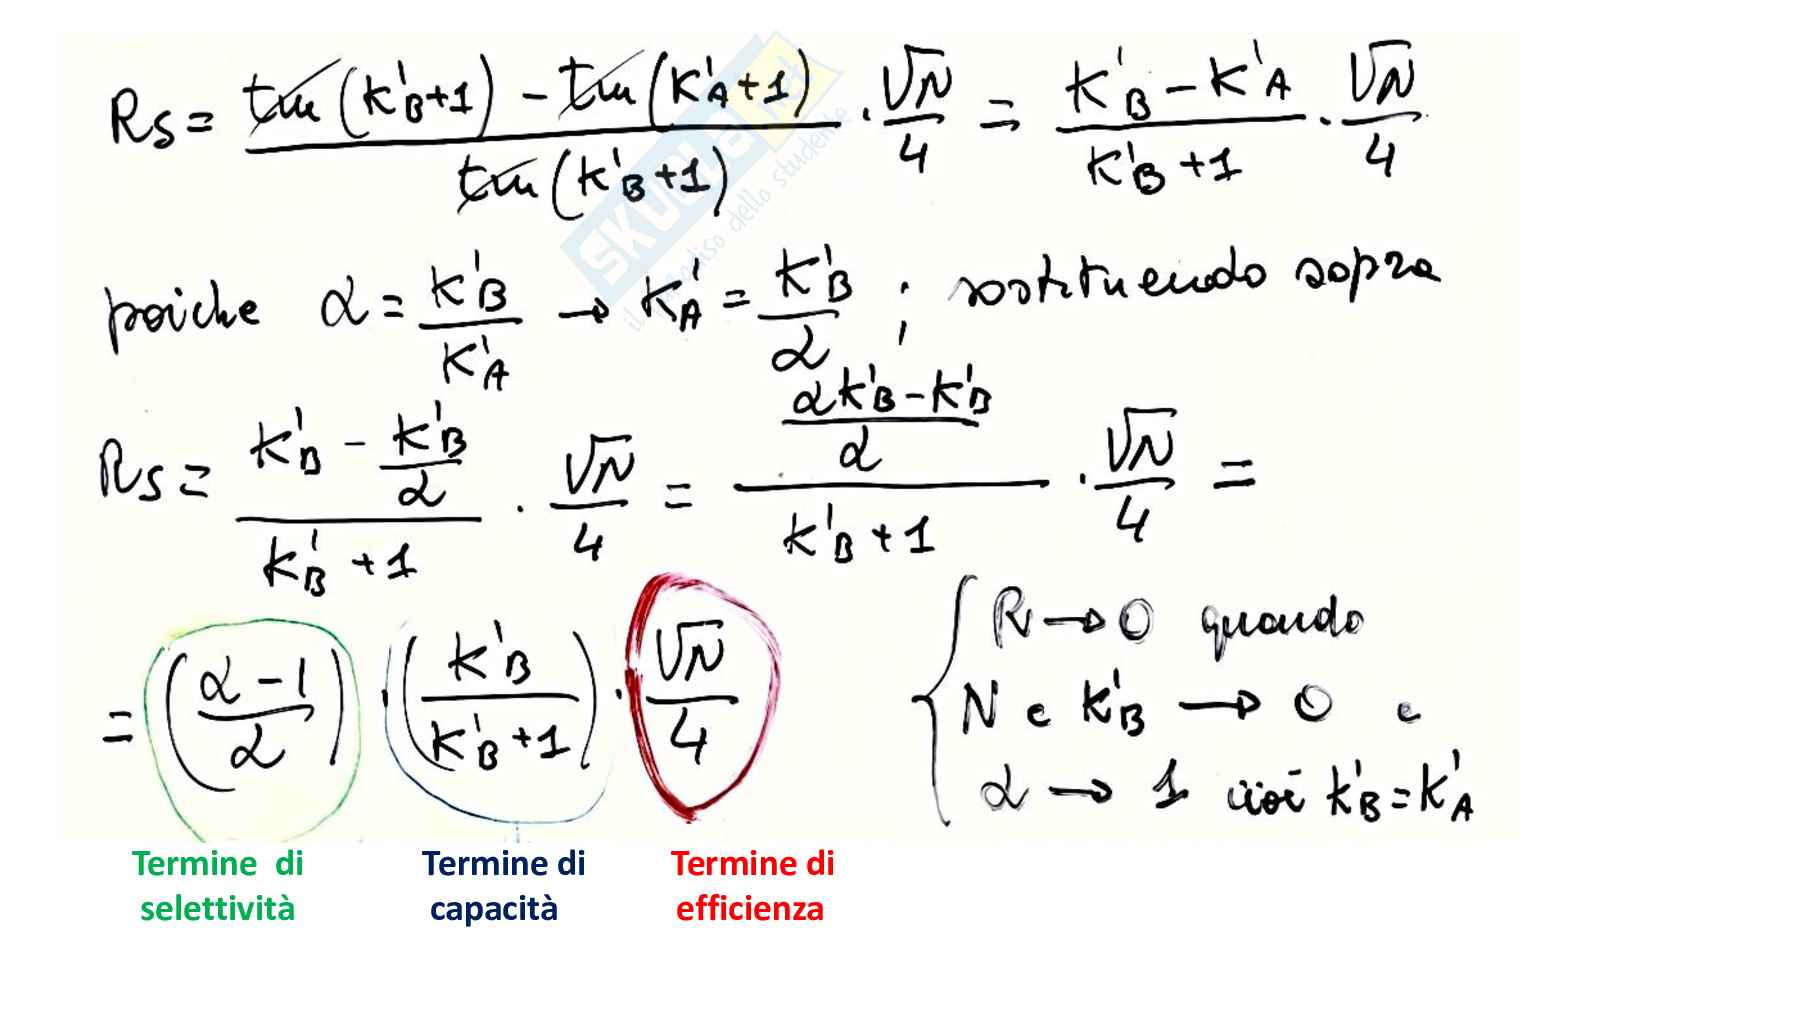 Rs = tm(k'B+1) - tm(k'A+1) / tm(k'B+1) · √N/4 = k'B - k'A / k'B+1 · √N/4
poiche α = k'B/k'A → k'A = k'B/α ; sostituendo sopra
Rs = k'B - k'B/α / k'B+1 · √N/4 = αk'B-k'B/α / k'B+1 · √N/4 =
= (α-1/α) · (k'B/k'B+1) · √N/4
R → 0 quando
N e k'B → 0 e
α → 1 cioè k'B = k'A
Termine di selettività
Termine di capacità
Termine di efficienza
SKUOLA.net
il paradiso dello studente